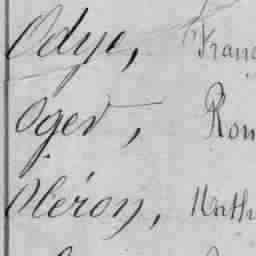 Odye, Franç
Oger, Rom
Oléron, Math